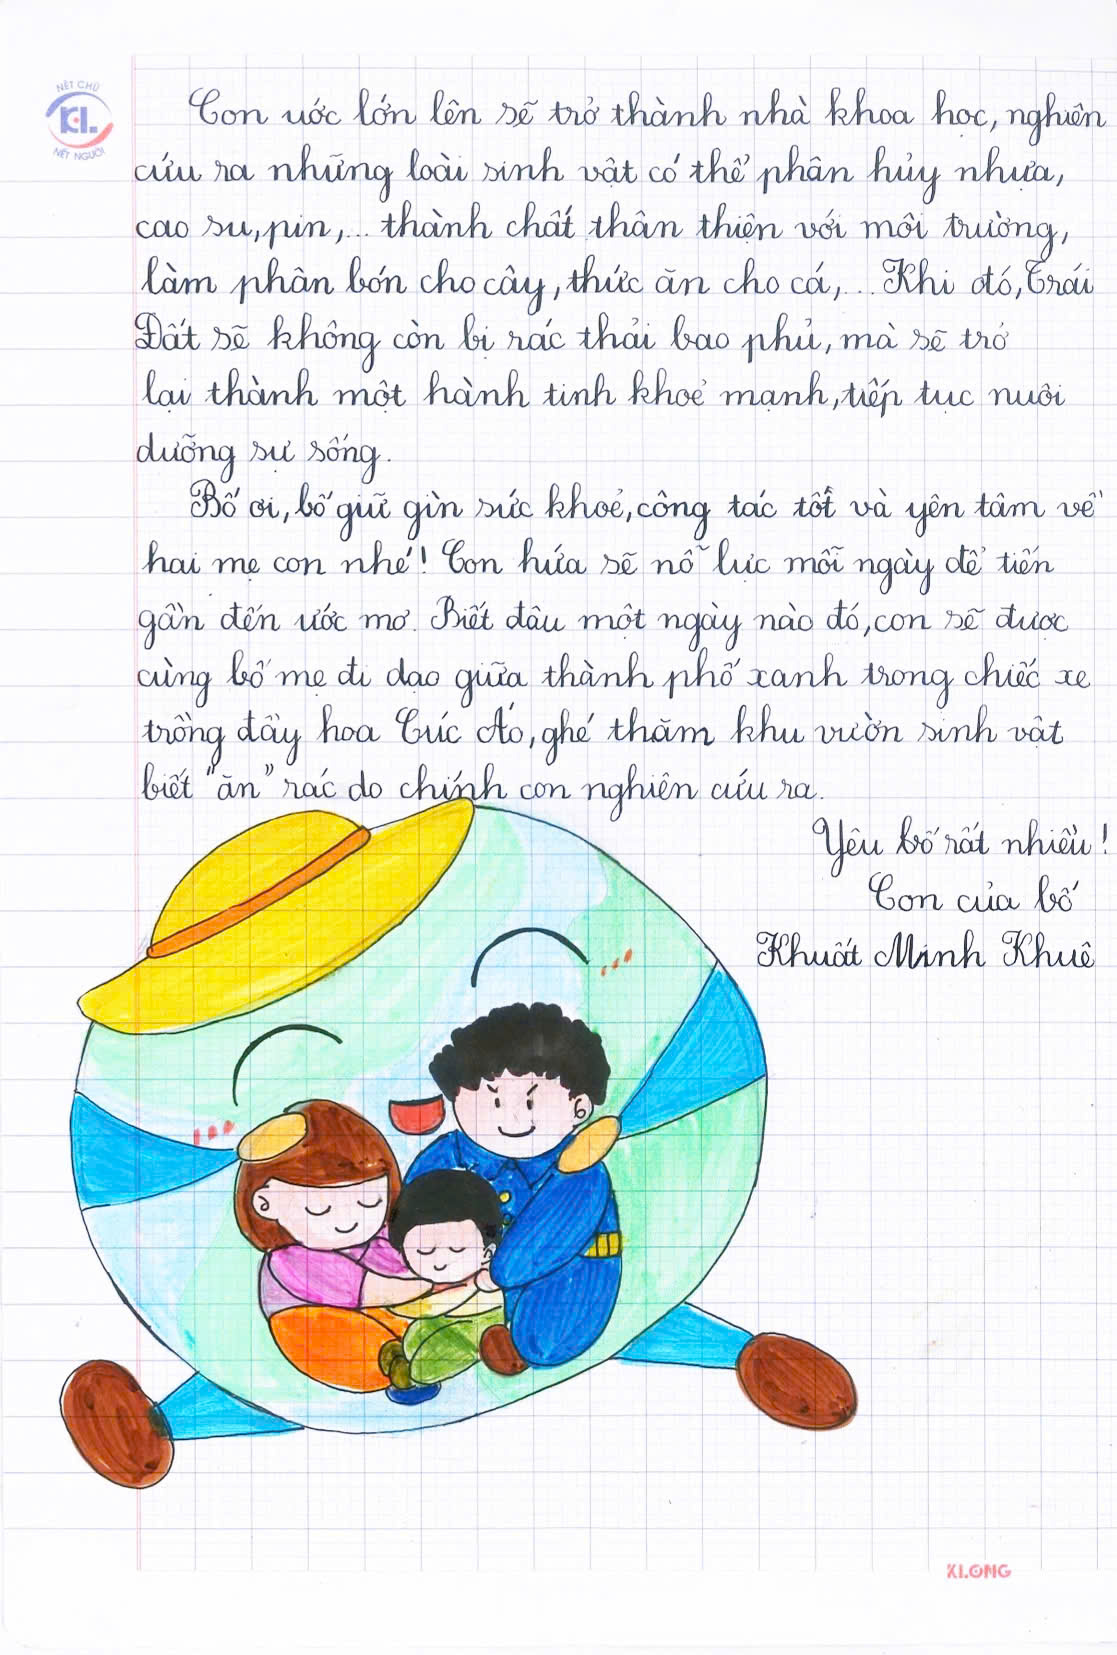 NÉT CHỮ
KL.
NẾT NGƯỜI
Con ước lớn lên sẽ trở thành nhà khoa học, nghiên
cứu ra những loài sinh vật có thể phân hủy nhựa,
cao su, pin,... thành chất thân thiện với môi trường,
làm phân bón cho cây, thức ăn cho cá,... Khi đó, Trái
Đất sẽ không còn bị rác thải bao phủ, mà sẽ trở
lại thành một hành tinh khoẻ mạnh, tiếp tục nuôi
dưỡng sự sống.
Bố ơi, bố giữ gìn sức khoẻ, công tác tốt và yên tâm về
hai mẹ con nhé! Con hứa sẽ nỗ lực mỗi ngày để tiến
gần đến ước mơ. Biết đâu một ngày nào đó, con sẽ được
cùng bố mẹ đi dạo giữa thành phố xanh trong chiếc xe
trồng đầy hoa Cúc Áo, ghé thăm khu vườn sinh vật
biết "ăn" rác do chính con nghiên cứu ra.
Yêu bố rất nhiều!
Con của bố
Khuất Minh Khuê
KLONG